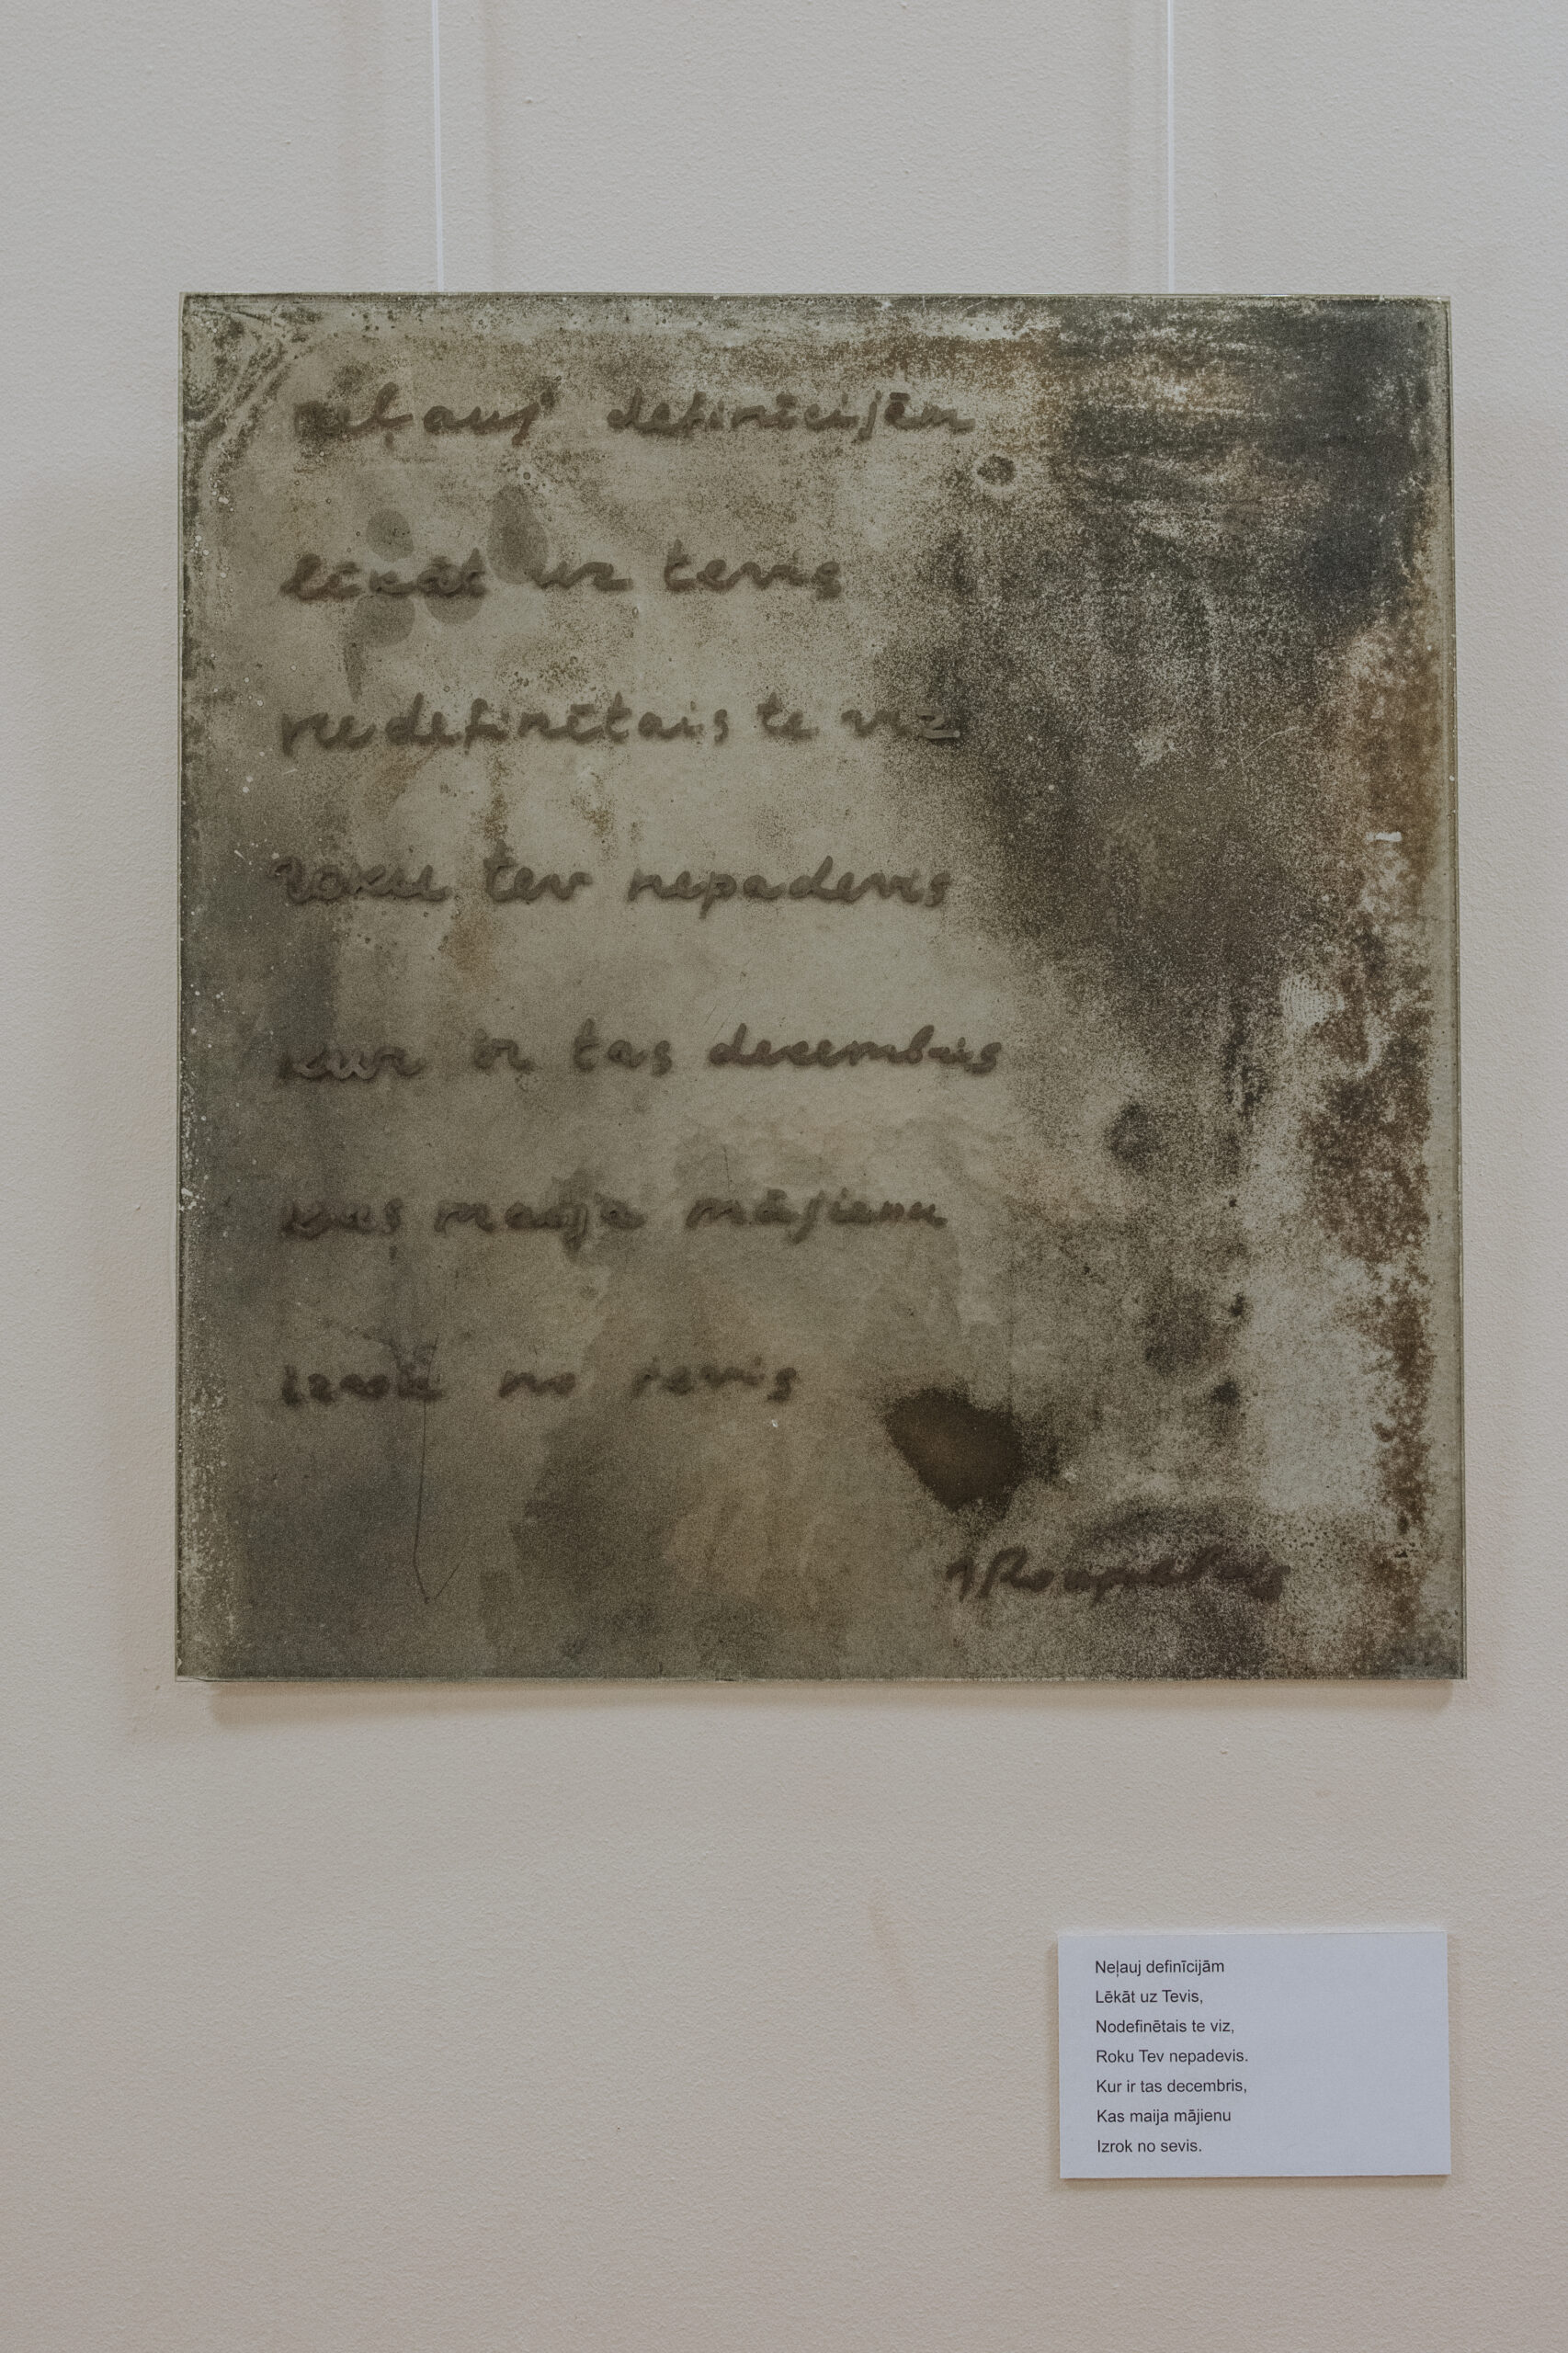 neļauj definīcijām
lēkāt uz tevis
nedefinētais te viz
roku tev nepadevis
kur ir tas decembris
kas maija mājienu
izrok no sevis
Neļauj definīcijām
Lēkāt uz Tevis,
Nodefinētais te viz,
Roku Tev nepadevis.
Kur ir tas decembris,
Kas maija mājienu
Izrok no sevis.